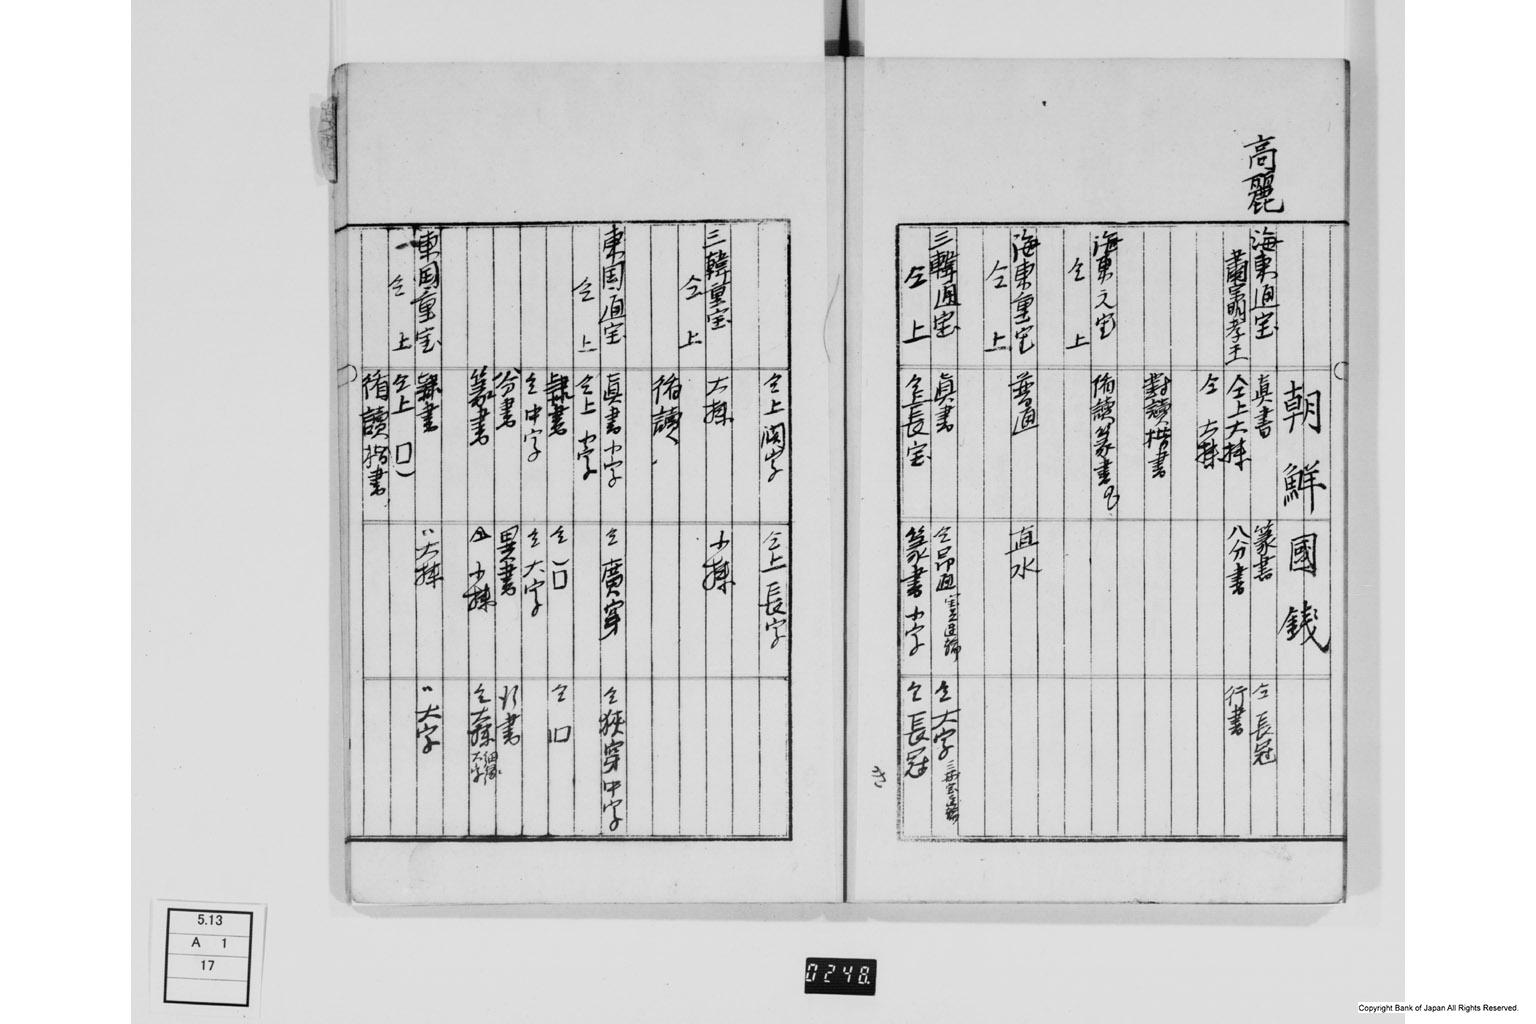 高麗
朝鮮國銭
海東通宝
肅宗明孝王
真書
篆書
仝長冠
仝上大様
八分書
行書
仝大様
對讀楷書
海東元宝
仝上
海東重宝
仝上
普通
直水
三韓通宝
仝上
真書
仝大字
仝長宝
篆書小字
仝長冠
仝上闊字
仝上長字
三韓重宝
仝上
大様
小様
循讀
東国通宝
仝上
真書小字
仝廣穿
仝狹穿中字
仝上小字
隷書
仝中字
仝大字
八分書
異書
行書
篆書
仝小様
仝大様
東国重宝
仝上
隷書
〃大様
〃大字
仝上
循讀楷書
5.13
A 1
17
0248.
Copyright Bank of Japan All Rights Reserved.